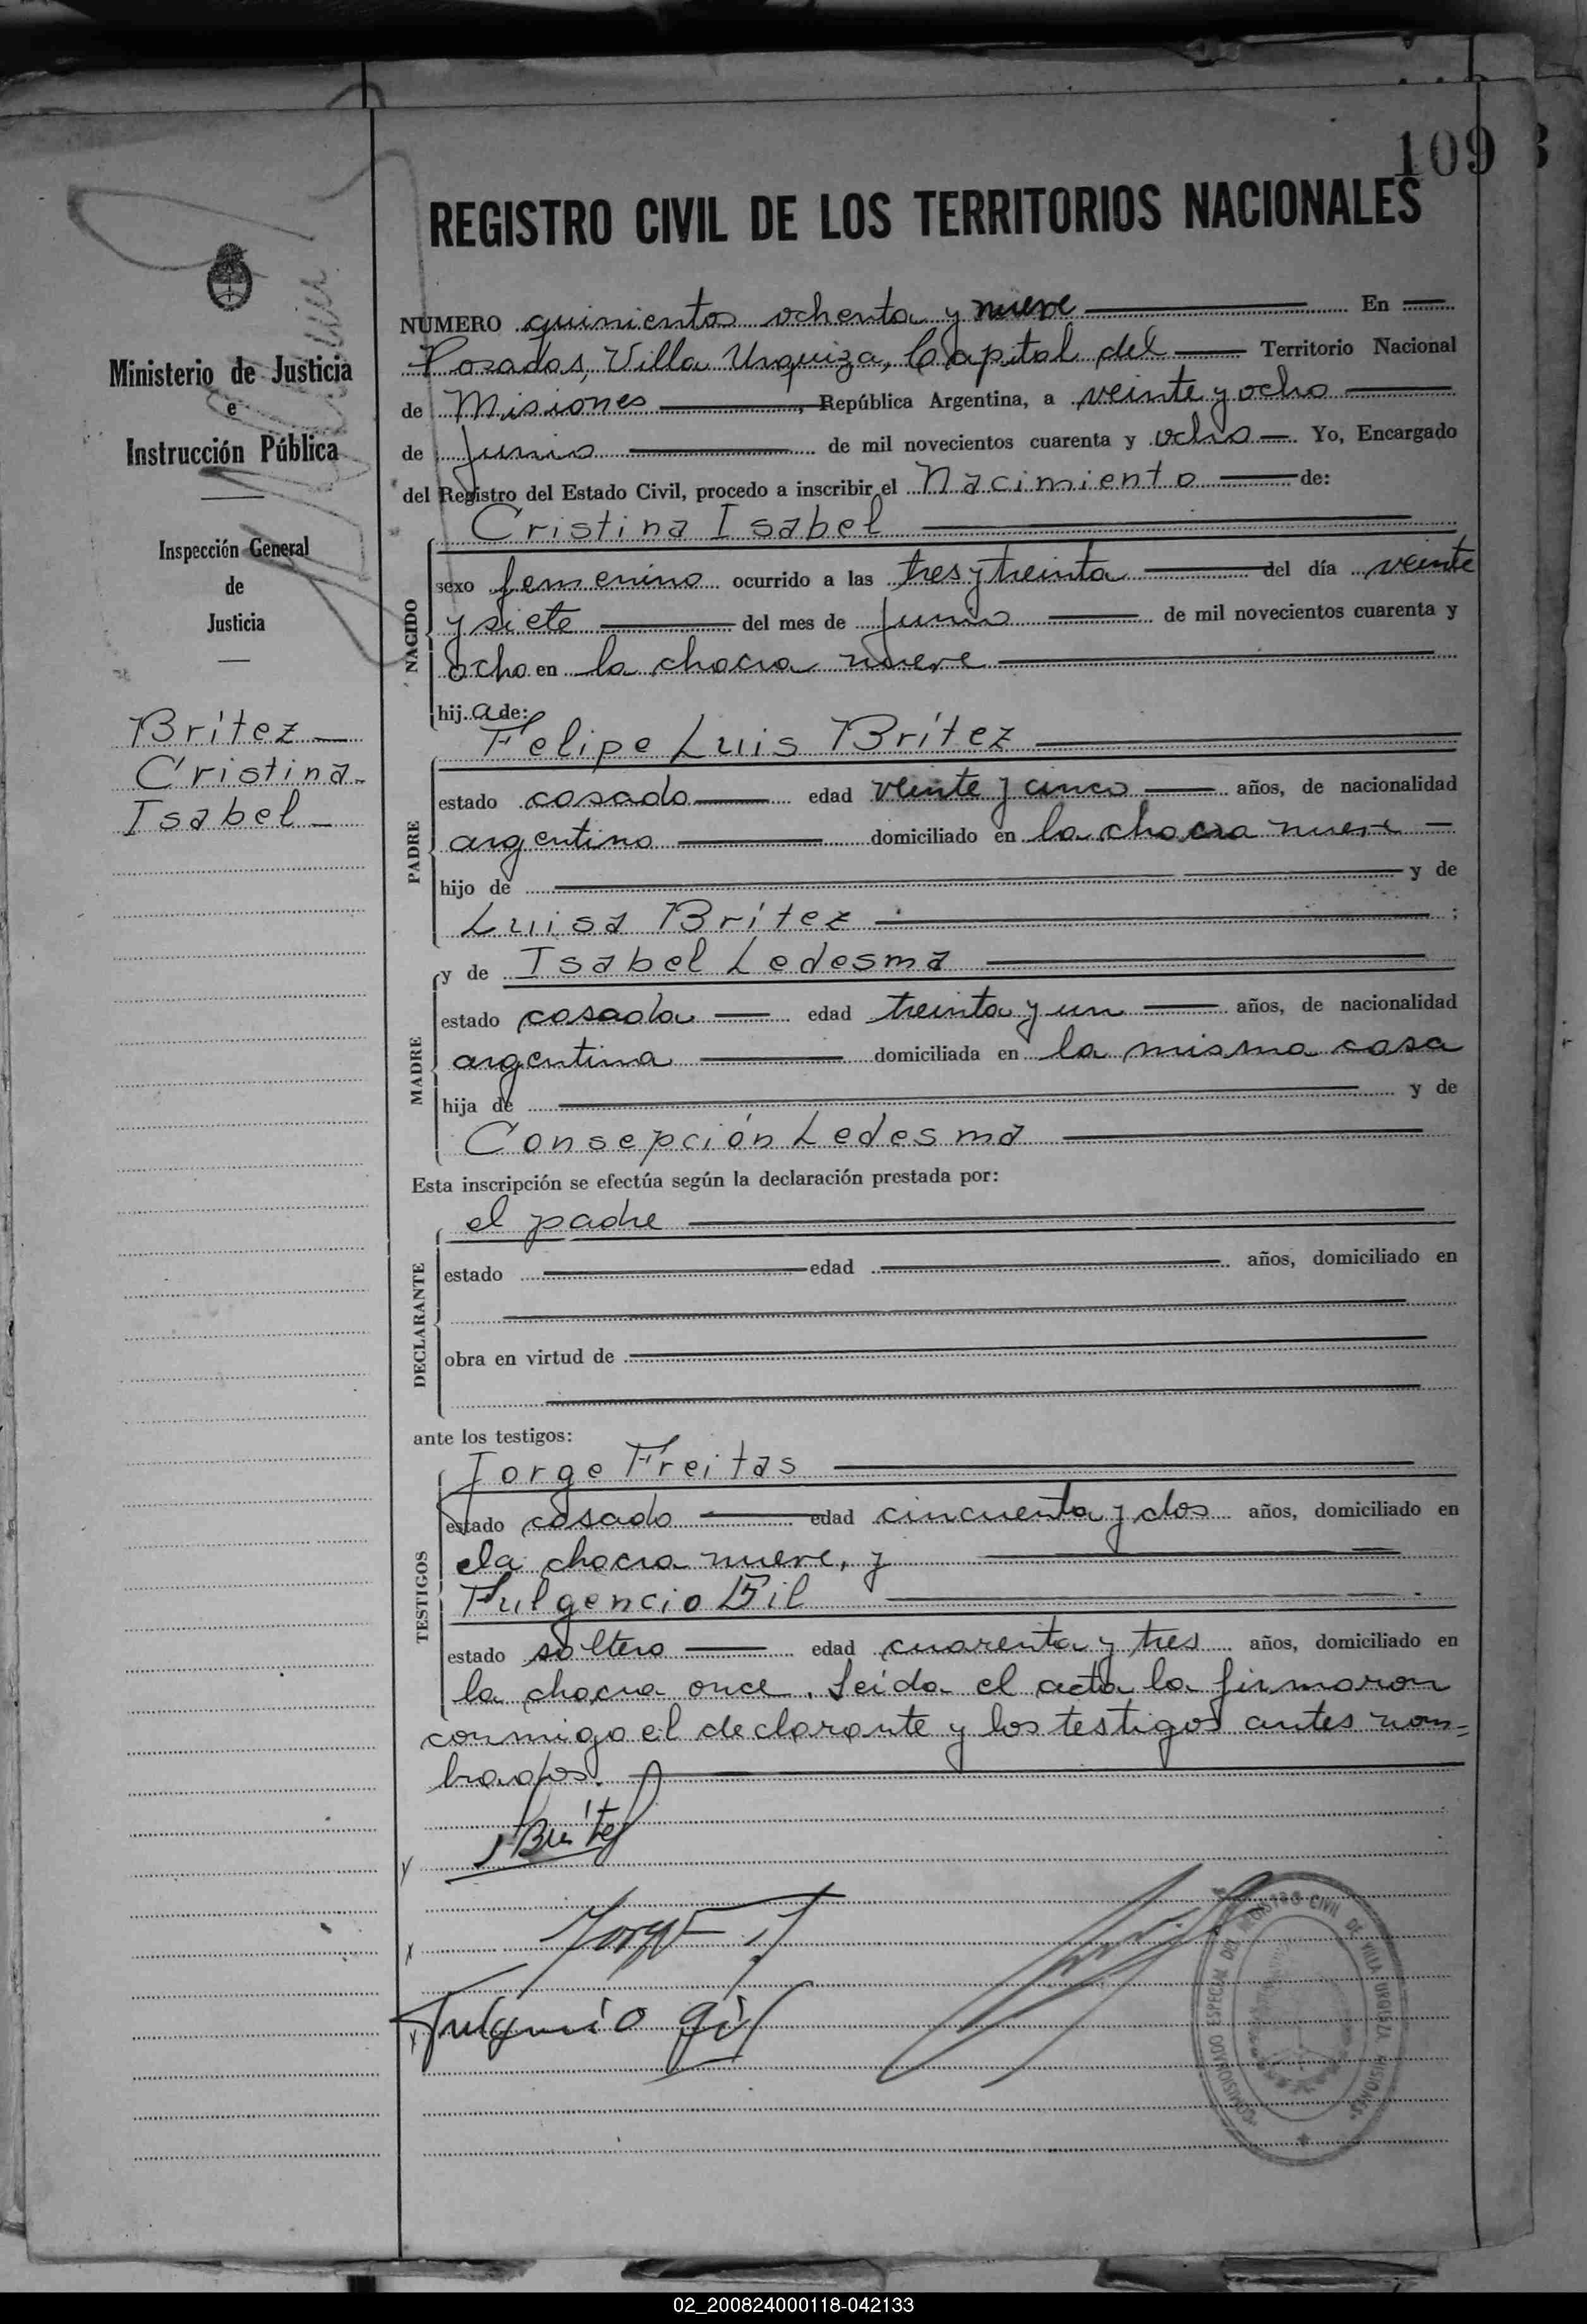 109
REGISTRO CIVIL DE LOS TERRITORIOS NACIONALES
Ministerio de Justicia
e
Instrucción Pública
Inspección General
de
Justicia
Brítez
Cristina
Isabel
NÚMERO quinientos ochenta y nueve En
Posadas, Villa Urquiza, Capital del Territorio Nacional
de Misiones, República Argentina, a veinte y ocho
de Junio de mil novecientos cuarenta y ocho Yo, Encargado
del Registro del Estado Civil, procedo a inscribir el Nacimiento de:
Cristina Isabel
NACIDO
sexo femenino ocurrido a las tres y treinta del día veinte
y siete del mes de Junio de mil novecientos cuarenta y
ocho en la chacra nueve
hija de:
Felipe Luis Brítez
PADRE
estado casado edad veinte y cinco años, de nacionalidad
argentino domiciliado en la chacra nueve
hijo de y de
Luisa Brítez ;
y de Isabel Ledesma
MADRE
estado casada edad treinta y un años, de nacionalidad
argentina domiciliada en la misma casa
hija de y de
Consepción Ledesma
Esta inscripción se efectúa según la declaración prestada por:
el padre
DECLARANTE
estado edad años, domiciliado en
obra en virtud de
ante los testigos:
Jorge Freitas
TESTIGOS
estado casado edad cincuenta y dos años, domiciliado en
la chacra nueve, y
Fulgencio Gil
estado soltero edad cuarenta y tres años, domiciliado en
la chacra once. Leída el acta la firmaron
conmigo el declarante y los testigos antes nom=
brados.
Brítez
Fulgencio Gil
COMISIONADO ESPECIAL DEL REGISTRO CIVIL DE VILLA URQUIZA MISIONES.
02_200824000118-042133